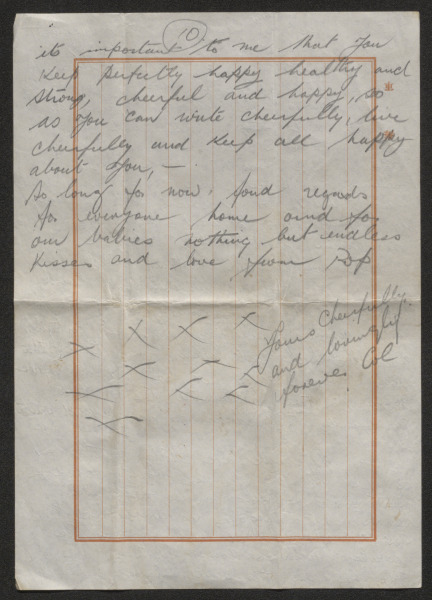 10
its important to me that you
keep perfectly happy healthy and
strong, cheerful and happy, so
as you can write cheerfully, live
cheerfully and keep all happy
about you, —
So long for now, fond regards
for everyone home and for
our babies nothing but endless
kisses and love from Pop
Yours Cheerfully
and lovingly
forever
X X X
X X X X
X X X
X